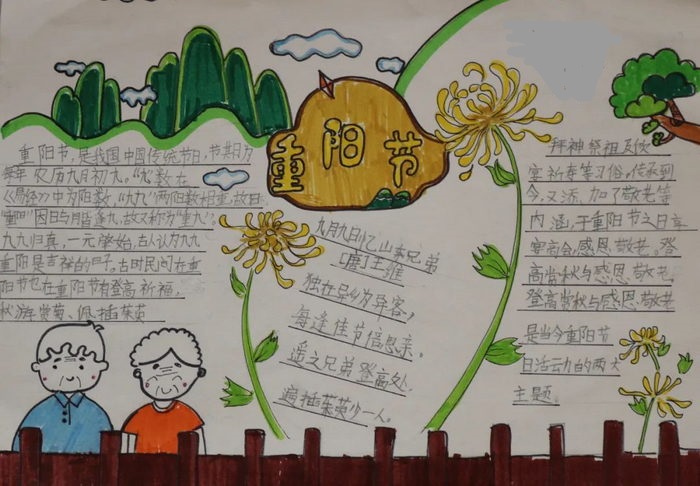 重阳节
重阳节，是我国中国传统节日，节期为
每年农历九月初九。“九”数在
《易经》中为阳数，“九九”两阳数相重，故曰
“重阳”因日与月皆逢九，故又称为“重九”。
九九归真，一元肇始，古人认为九九
重阳是吉祥的日子。古时民间在重
阳节也在重阳节有登高祈福，
秋游赏菊、佩插茱萸
九月九日忆山东兄弟
[唐]王维
独在异乡为异客，
每逢佳节倍思亲。
遥知兄弟登高处，
遍插茱萸少一人。
拜神祭祖及饮
宴祈寿等习俗。传承到
今，又添加了敬老等
内涵，于重阳节之日享
宴高会，感恩敬老。登
高赏秋与感恩敬老
登高赏秋与感恩敬老
是当今重阳节
日活动的两大
主题。